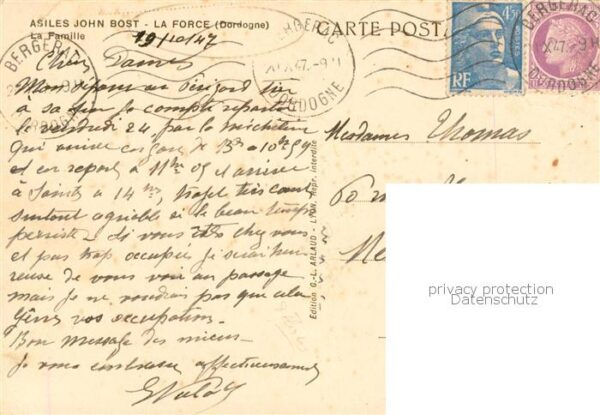 ASILES JOHN BOST - LA FORCE (Dordogne)
La Famille
CARTE POST
19/10/47
Chères Dames
Mon séjour au Périgord tire
à sa fin je compte repartir
le vendredi 24 par la micheline
qui arrive en gare de B à 10h 59
et en repart à 11h 05 et arrive
à Saintes à 14 h, trajet très court
surtout agréable si le beau temps
persiste. Si vous êtes chez vous
et pas trop occupées je serai heu
reuse de vous voir au passage
mais je ne voudrais pas que cela
gêne vos occupations.
Bon message des miens.
Je vous embrasse affectueusement
Mesdames Thomas
BERGERAC
DORDOGNE
X 47
BERGERAC
DORDOGNE
BERGERAC
DORDOGNE
4f50
RF
Edition G.-L. ARLAUD - LYON. Repr. interdite
privacy protection
Datenschutz